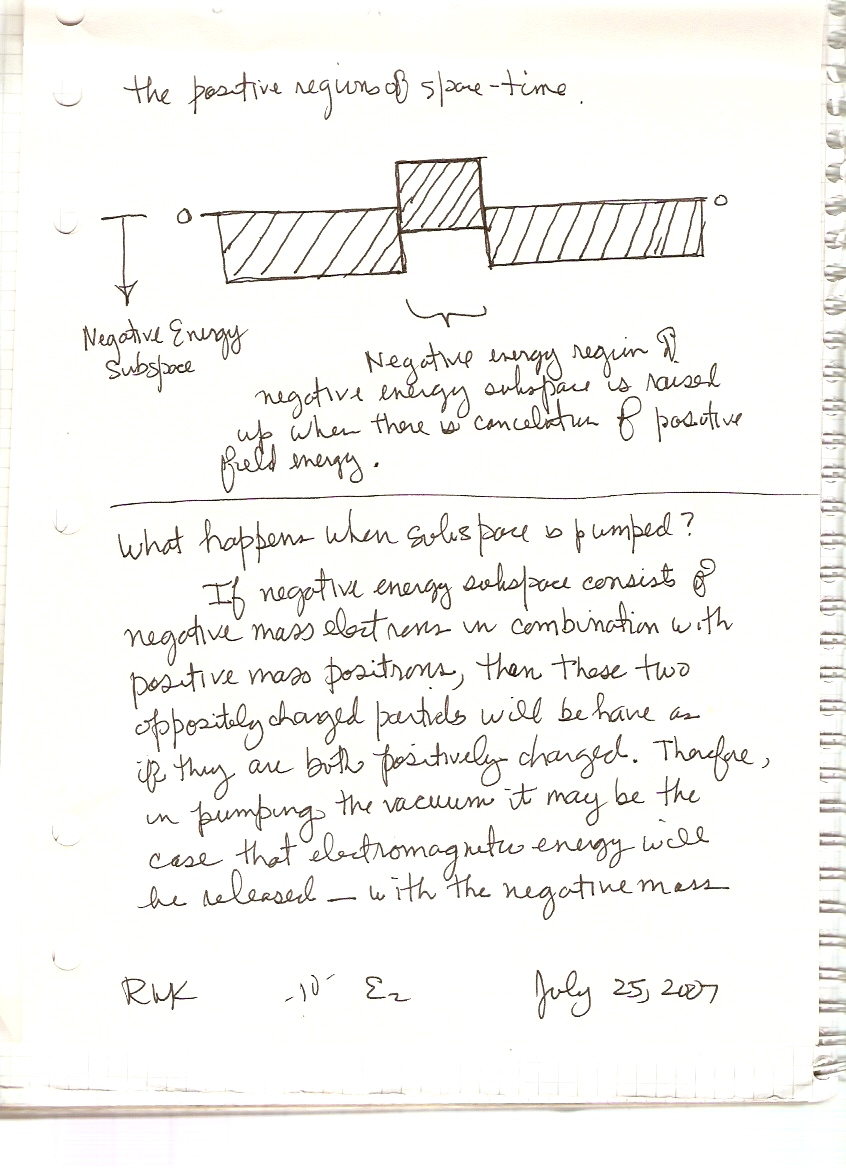 the positive regions of space-time.
o
o
Negative Energy
Subspace
Negative energy region of
negative energy subspace is raised
up when there is cancelation of positive
field energy.
What happens when subspace is pumped?
If negative energy subspace consists of
negative mass electrons in combination with
positive mass positrons, then these two
oppositely charged particles will behave as
if they are both positively charged. Therefore,
in pumping the vacuum it may be the
case that electromagnetic energy will
be released — with the negative mass
RWK -10- Σ2 July 25, 2007